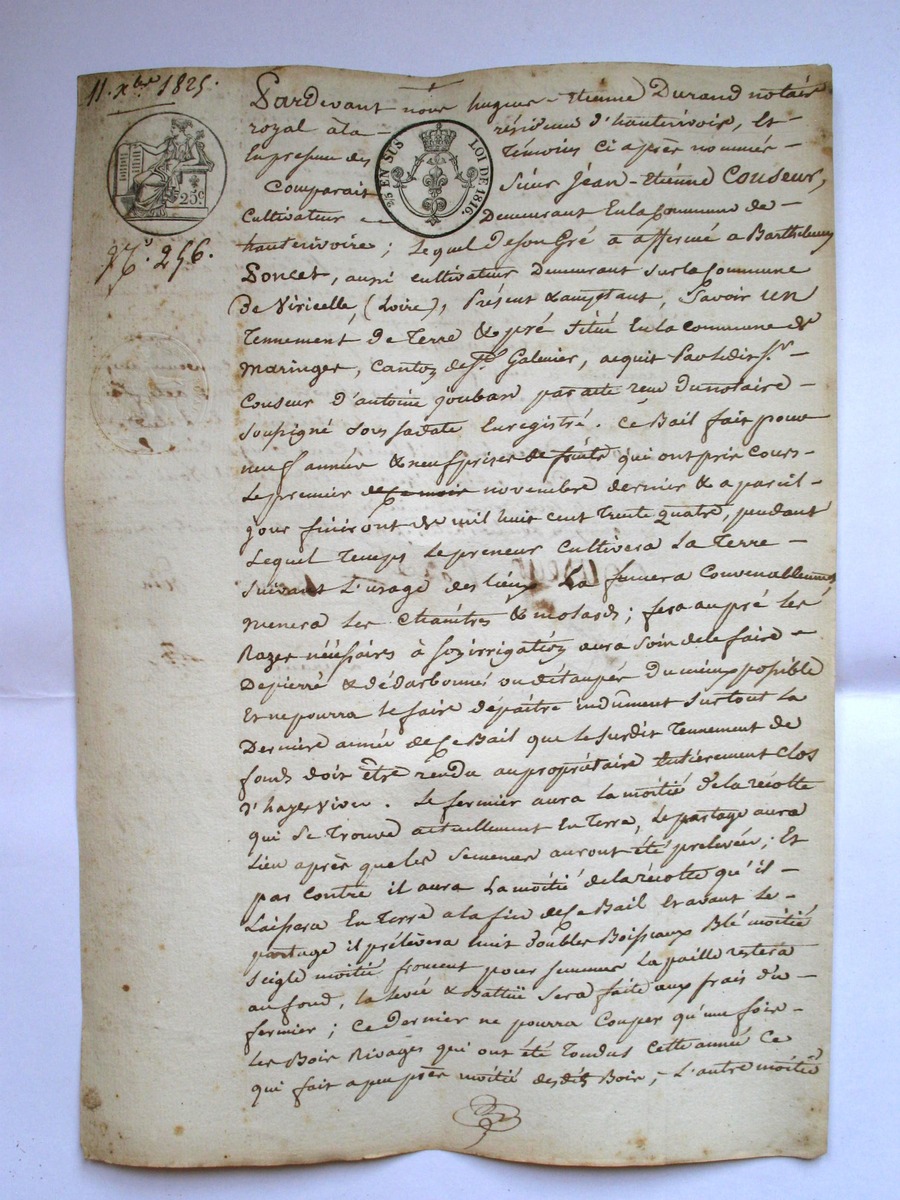 11. xbre 1825.
Pardevant nous hugues-Etienne Durand notaire
royal à la résidence d'hauterivoir, Et
En presence des Témoins ci après nommés
25c
EN SUS LOI DE 1816.
Comparait Sieur Jean-Etienne Couseur,
Cultivateur Demeurant En la Commune de
No. 256.
hauterivoire; Lequel De son Gré a affermé a Barthelemy
Poncet, aussi cultivateur Demeurant sur la Commune
De Viricelle, (Loire), Présent & acceptant, Savoir un
Tennement de Terre & pré situé En la commune de
Maringes, Canton de St. Galmier, acquit par ledit Sr.
Couseur d'antoine jouban par acte reçu du notaire
soussigné sous sa date Enregistré. Ce Bail fait pour
neuf années & neuf prises de fruits qui ont pris Cours
Le premier de Ce mois novembre dernier & a pareil
jour finiront de mil huit cent Trente quatre, pendant
Lequel Temps Le preneur Cultivera La Terre
suivant L'usage des lieux La fumera Convenablement
menera Les Chaintres & molards; fera au pré les
Razes nécéssaires à son irrigation aura soin de le faire
Depierré & dédarbonné ou détaupés Du mieux possible
Et ne pourra le faire depaitre indûment surtout La
Derniere année de Ce Bail que le susdit Tennement de
fonds doit être rendu au propriétaire Entièrement Clos
d'hayes vives. Le fermier aura la moitié de la récolte
qui se Trouve actuellement En Terre, Le partage aura
Lieu après que les semences auront été prelevées; Et
par Contre il aura La moitié de la récolte qu'il
Laissera En Terre a la fin de Ce Bail Et avant Le
partage il prélèvera huit doubles Boisseaux Blé moitié
seigle moitié froment pour semences La paille restera
au fond, la levée & Battüe sera faite aux frais du
fermier; Ce Dernier ne pourra Couper qu'une fois
Les Bois Rivages qui ont été Tondus Cette année Ce
qui fait a peu près moitié desdits Bois, L'autre moitié